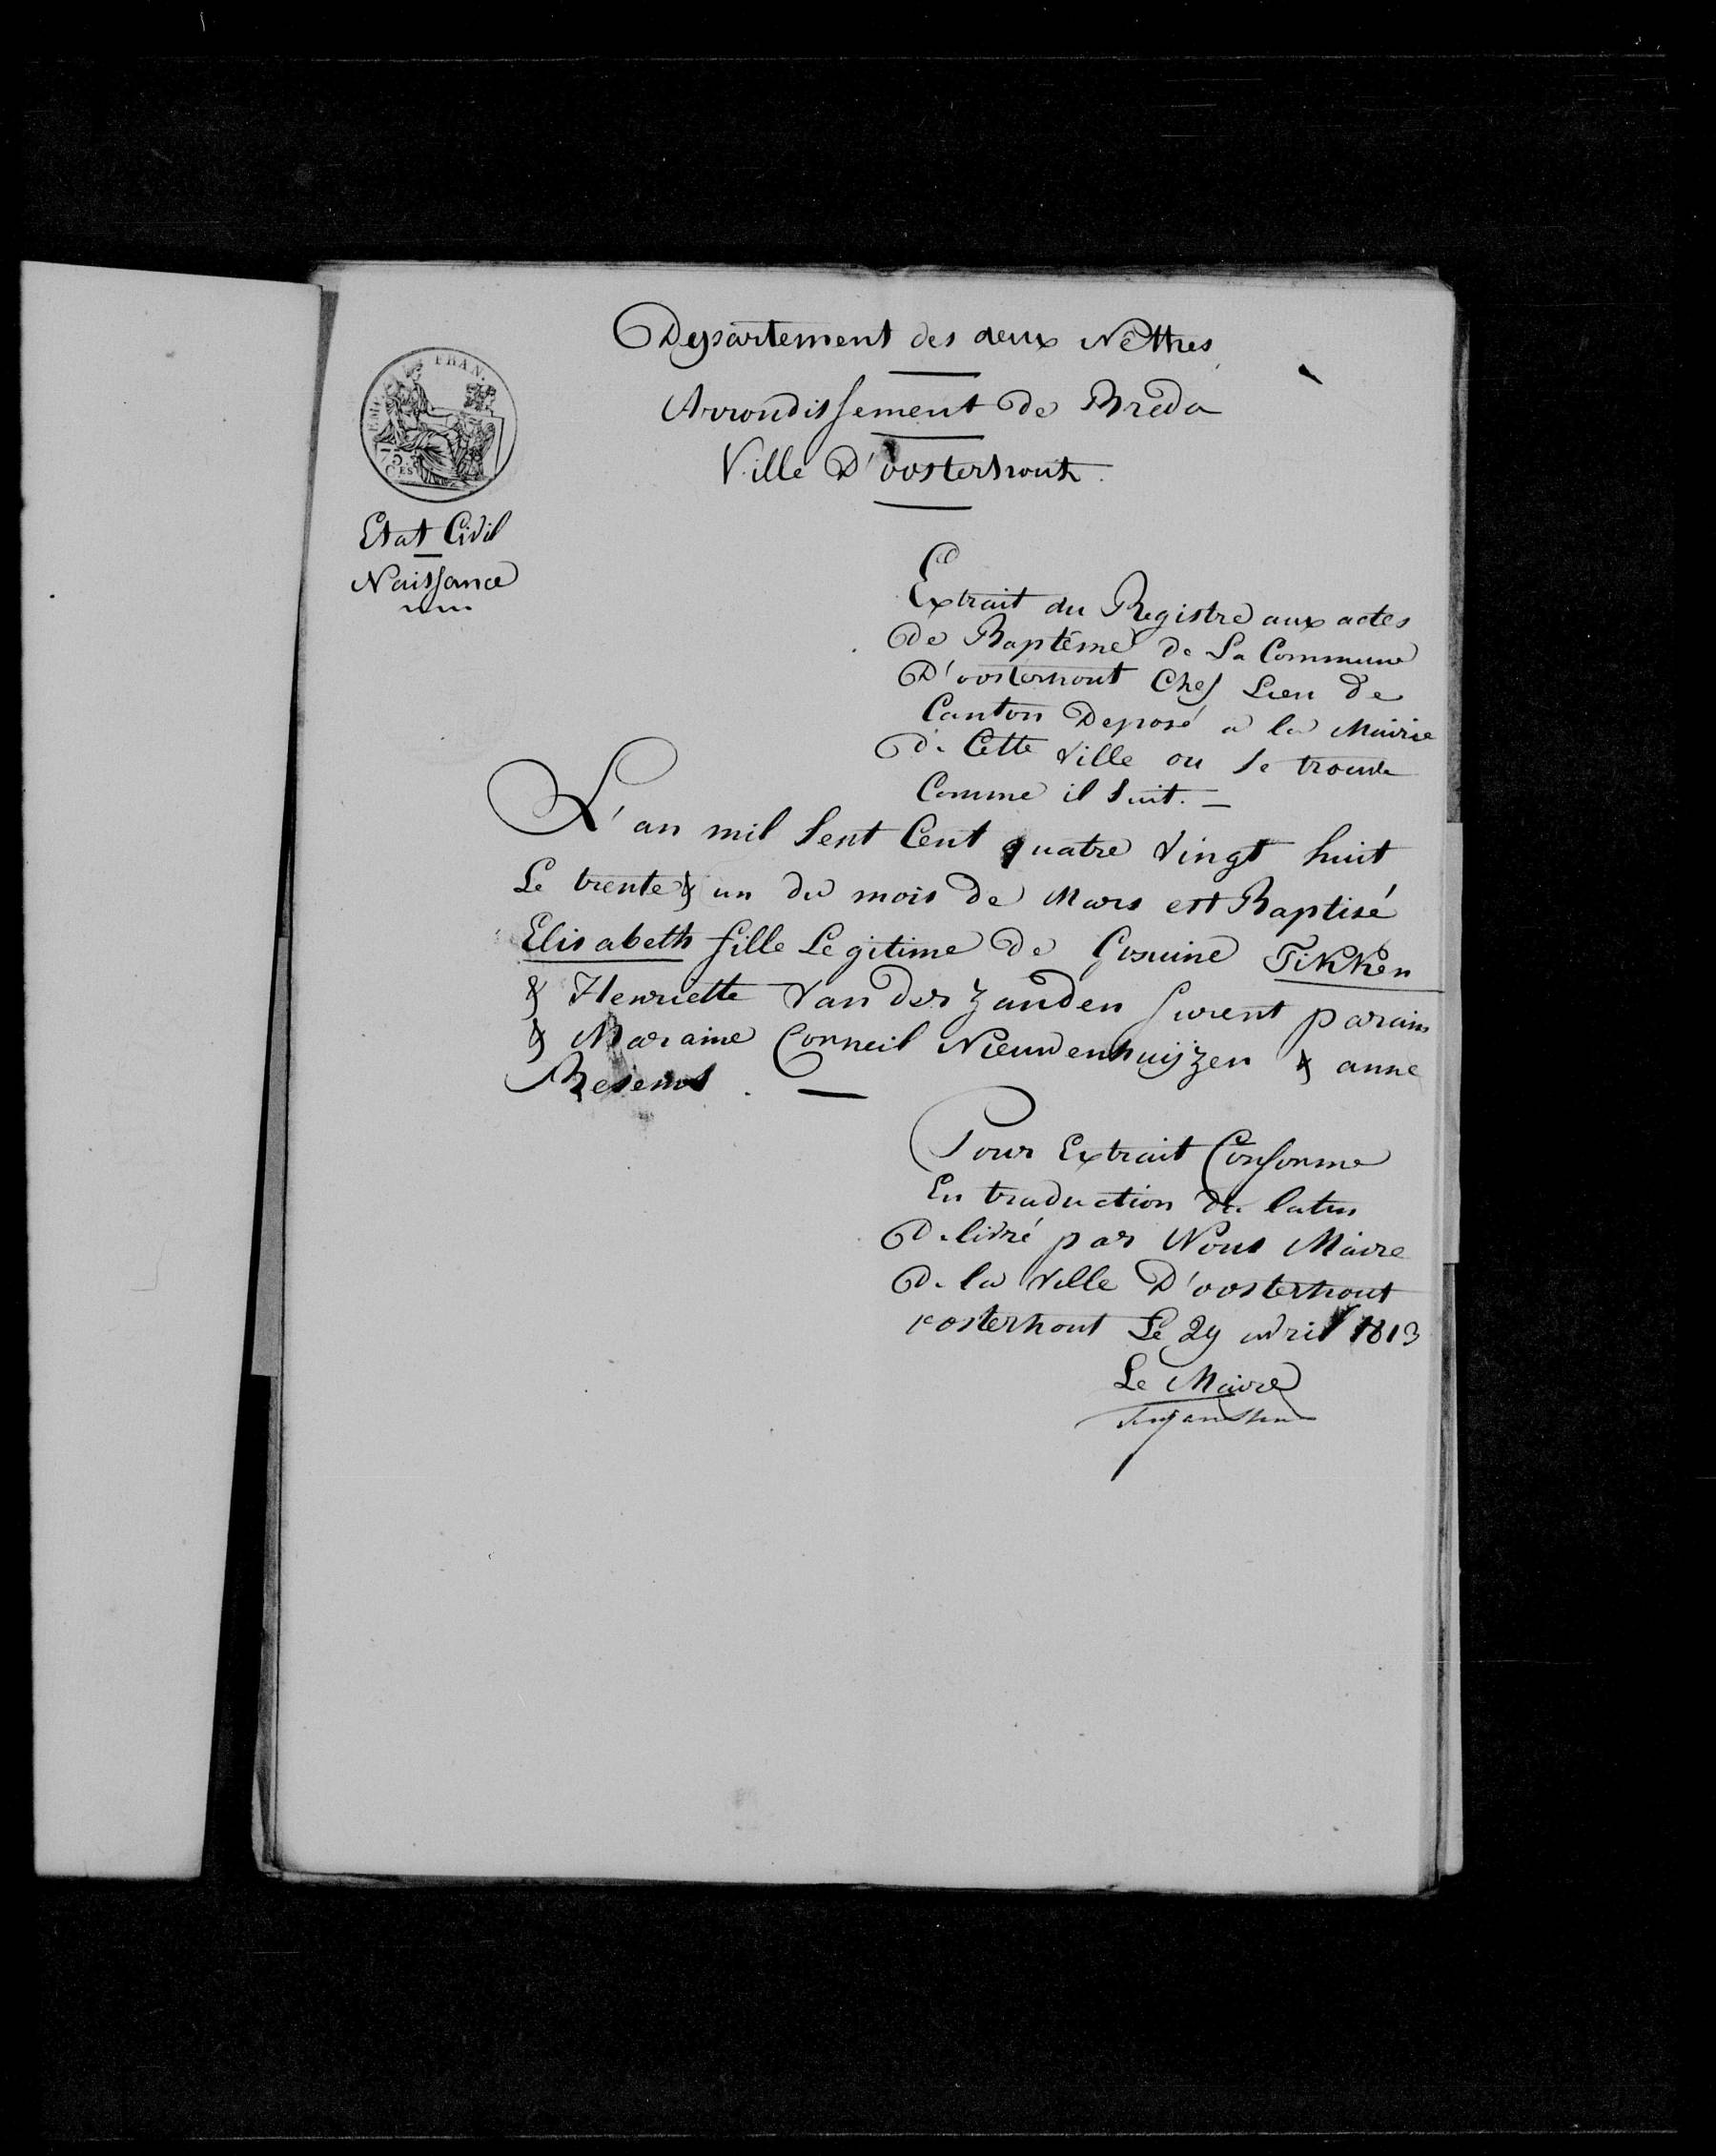 Departement des deux Nêthes
Arrondissement de Breda
Ville D'oosterhout.
EMP. FRAN.
75
CES
Etat Civil
Naissance
Extrait du Registre aux actes
de Baptême de La Commune
D'oosterhout Chef Lieu de
Canton Deposé a la Mairie
de Cette Ville ou se trouve
Comme il suit. —
L'an mil Sept Cent quatre Vingt huit
Le trente & un du mois de Mars est Baptisé
Elisabeth fille Legitime de Gosuine Tikken
& Henriette Van der Zanden furent parain
& Maraine Corneil Nieuwenhuijzen & anne
. —
Pour Extrait Conforme
En traduction du latin
Delivré par Nous Maire
de la Ville D'oosterhout
oosterhout Le 29 avril 1813
Le Maire